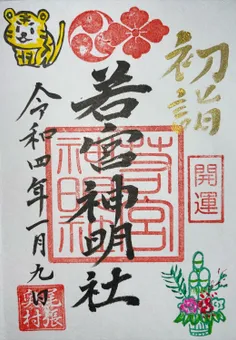 初詣
開運
若宮神明社
若宮神明社
令和四年一月九日
尾張
奥村